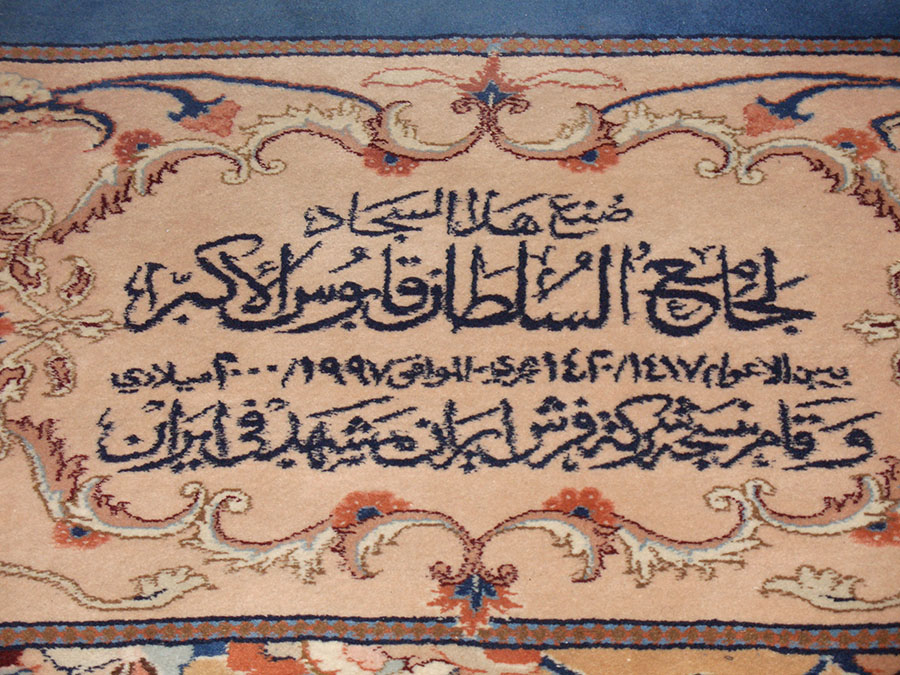 صنع هذا السجاد
لجامع السلطان قابوس الأكبر
بين الاعوام ١٤١٧/١٤٢٠ هجري - الموافق ١٩٩٧/٢٠٠٠ ميلادي
وقام بنسجه شركة فرش ايران مشهد في ايران